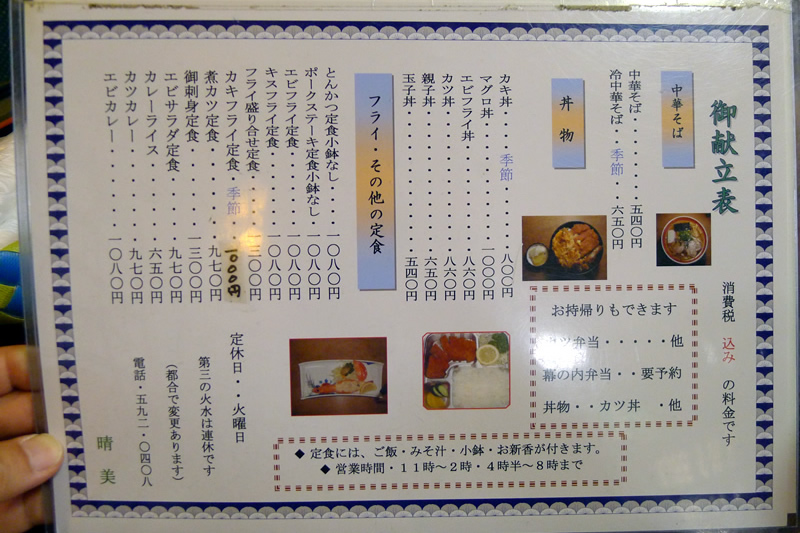 御献立表
消費税 込み の料金です
中華そば
中華そば・・・・・・・五四〇円
冷中華そば・・季節・・六五〇円
丼物
カキ丼・・季節・・・・八〇〇円
マグロ丼・・・・・・・一〇〇〇円
エビフライ丼・・・・・八六〇円
カツ丼・・・・・・・・八六〇円
親子丼・・・・・・・・六五〇円
玉子丼・・・・・・・・五四〇円
フライ・その他の定食
とんかつ定食小鉢なし・・・・一〇八〇円
ポークステーキ定食小鉢なし・一〇八〇円
エビフライ定食・・・・・・・一〇八〇円
キスフライ定食・・・・・・・一〇八〇円
フライ盛り合せ定食・・・・・一三〇〇円
カキフライ定食・・季節・・1000円
煮カツ定食・・・・・・・・・九七〇円
御刺身定食・・・・・・・・・一三〇〇円
エビサラダ定食・・・・・・・九七〇円
カレーライス・・・・・・・・六五〇円
カツカレー・・・・・・・・・九七〇円
エビカレー・・・・・・・・・一〇八〇円
お持帰りもできます
カツ弁当・・・・・・他
幕の内弁当・・・要予約
丼物・・カツ丼 ・他
◆ 定食には、ご飯・みそ汁・小鉢・お新香が付きます。
◆ 営業時間・11時～2時・4時半～8時まで
定休日・・火曜日
第三の火水は連休です
(都合で変更あります)
電話・五九二-〇四〇八
晴美